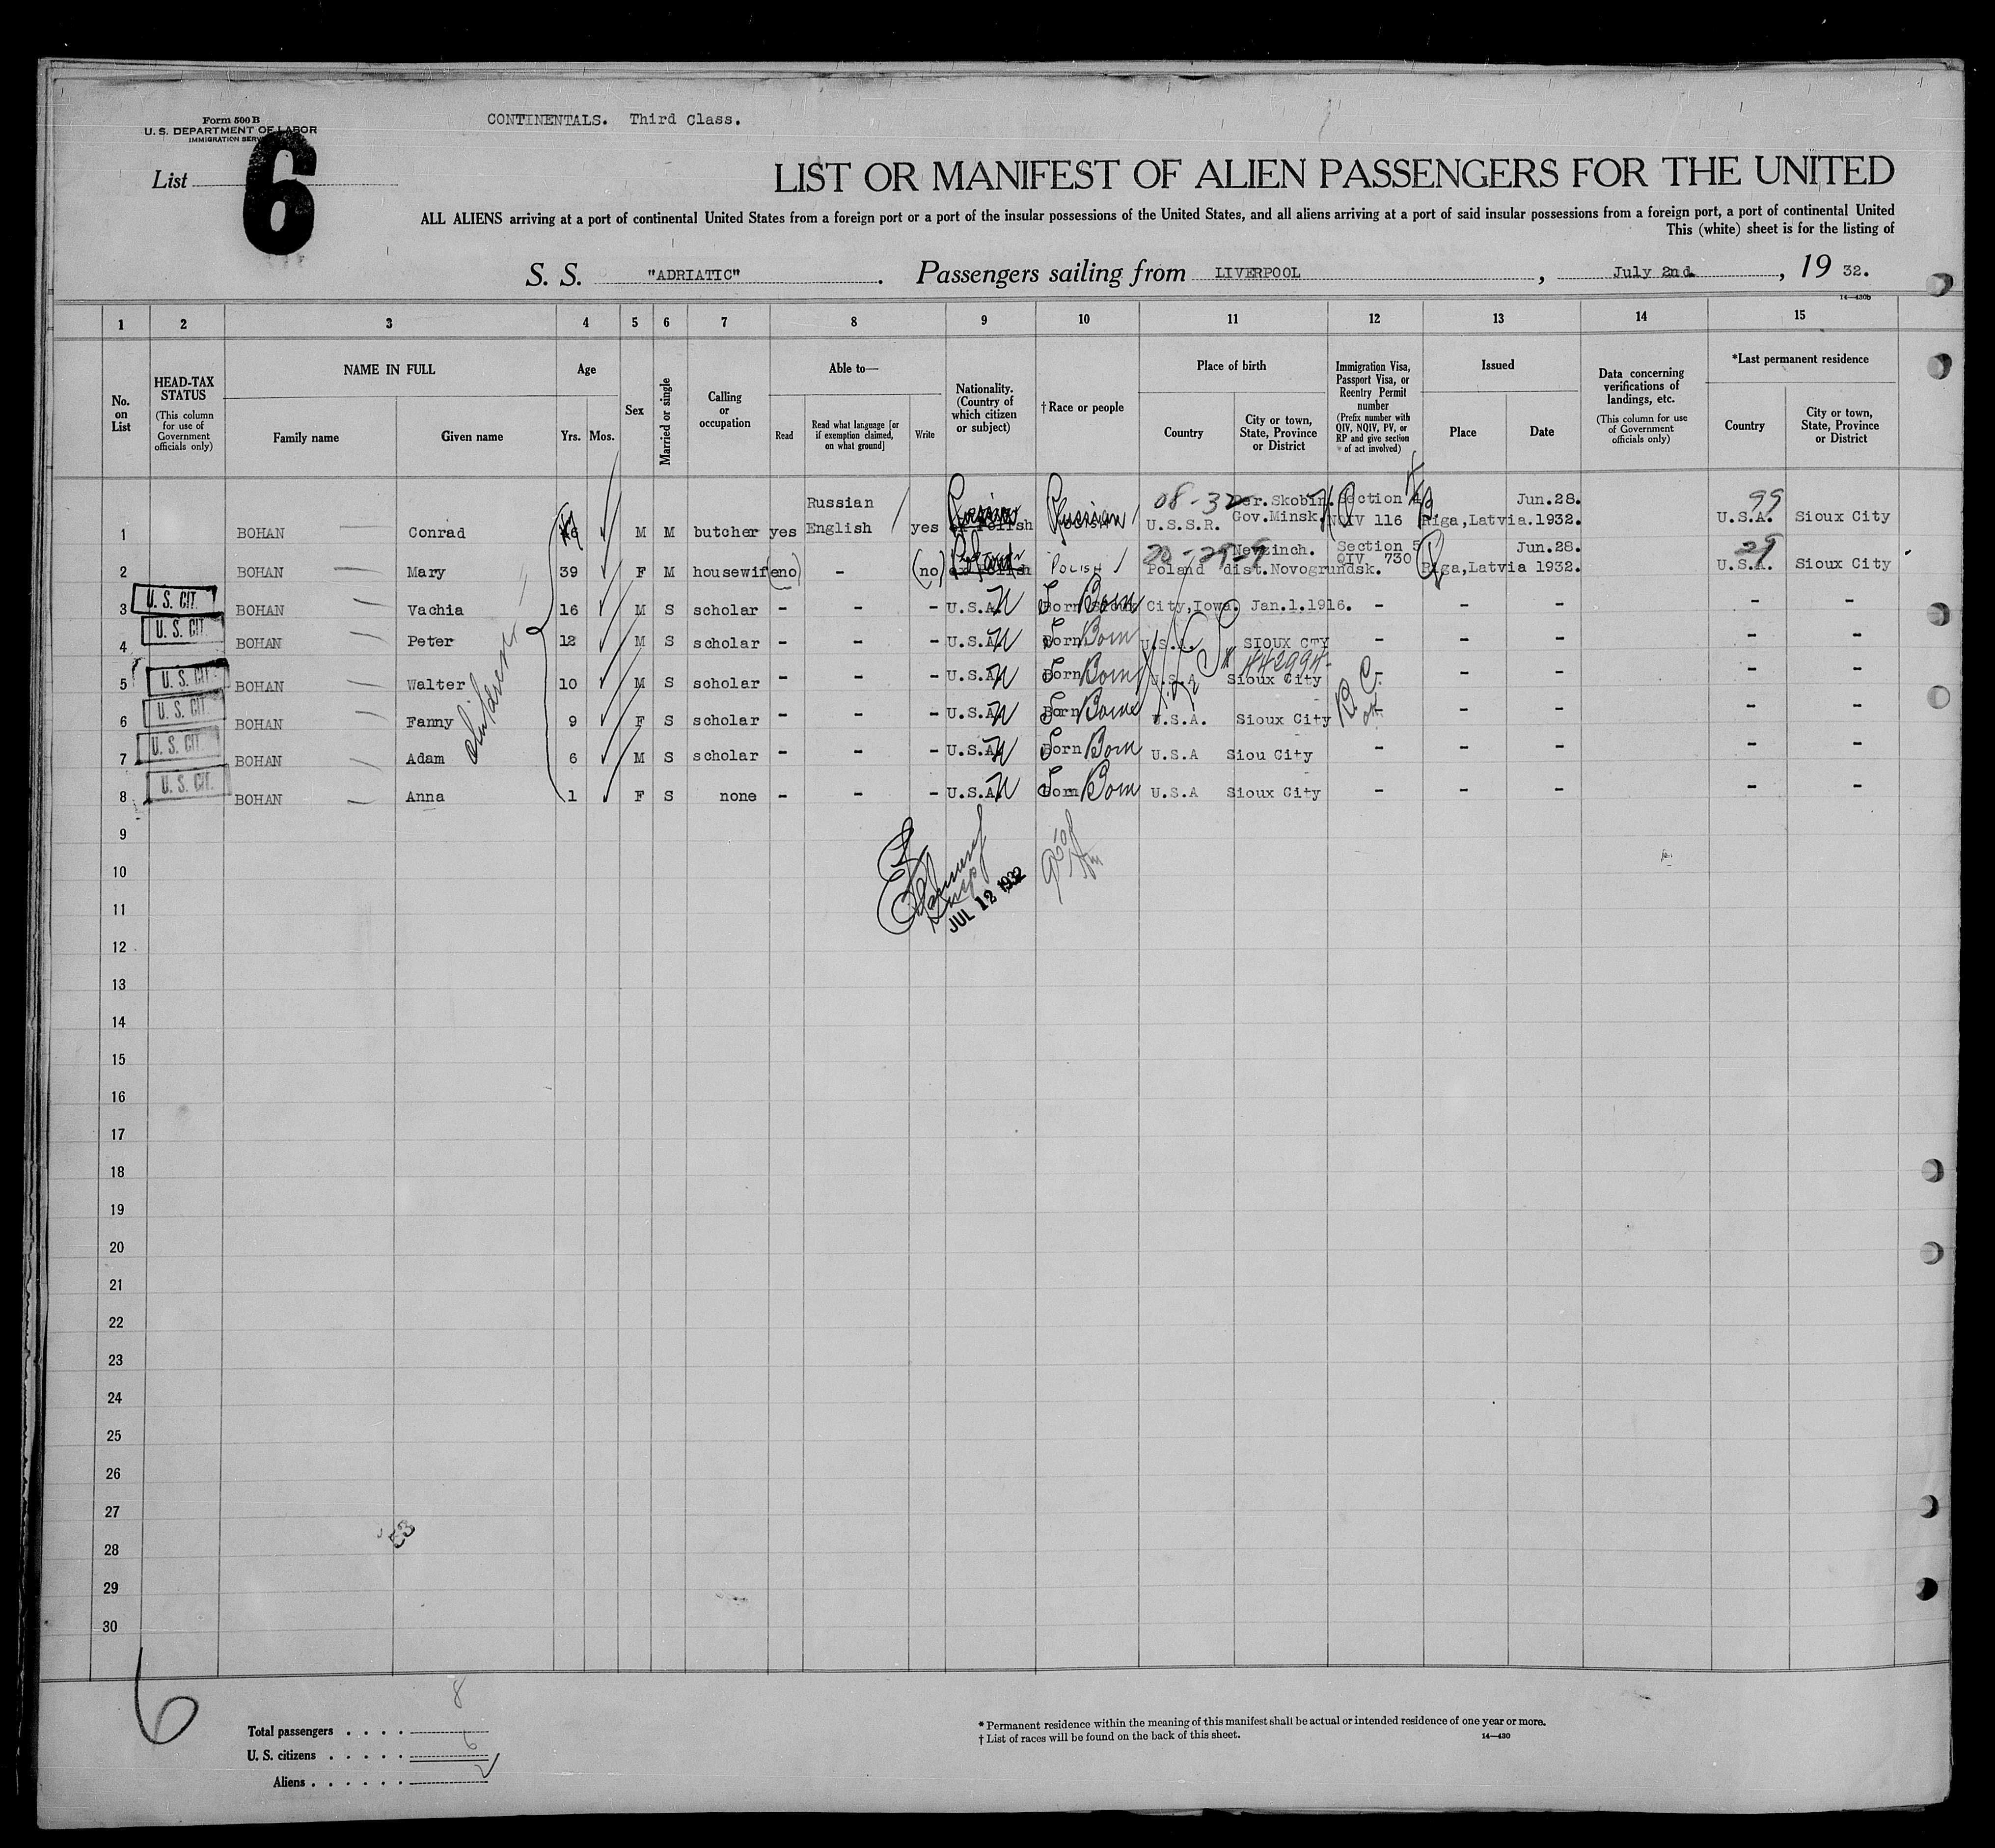 Form 500 B
U. S. DEPARTMENT OF LABOR
IMMIGRATION
CONTINENTALS. Third Class.
List 6
LIST OR MANIFEST OF ALIEN PASSENGERS FOR THE UNITED
ALL ALIENS arriving at a port of continental United States from a foreign port or a port of the insular possessions of the United States, and all aliens arriving at a port of said insular possessions from a foreign port, a port of continental United
This (white) sheet is for the listing of
S. S. "ADRIATIC". Passengers sailing from LIVERPOOL, July 2nd., 19 32.
14—430b
1 2 3 4 5 6 7 8 9 10 11 12 13 14 15
No. on List
HEAD-TAX STATUS (This column for use of Government officials only)
NAME IN FULL
Family name
Given name
Age
Yrs. Mos.
Sex
Married or single
Calling or occupation
Able to—
Read
Read what language [or if exemption claimed, on what ground]
Write
Nationality. (Country of which citizen or subject)
†Race or people
Place of birth
Country
City or town, State, Province or District
Immigration Visa, Passport Visa, or Reentry Permit number (Prefix number with QIV, NQIV, PV, or RP and give section of act involved)
Issued
Place
Date
Data concerning verifications of landings, etc. (This column for use of Government officials only)
*Last permanent residence
Country
City or town, State, Province or District
Russian 08-32 Section 4 Jun.28. 99
1 BOHAN Conrad M M butcher yes English yes Polish Russian U.S.S.R. Gov.Minsk. NQIV 116 Riga,Latvia.1932. U.S.A. Sioux City
Section 5 Jun.28. 29
2 BOHAN Mary 39 F M housewife (no) - (no) POLISH Poland dist.Novogrundsk. QIV 730 Riga,Latvia 1932. U.S.A. Sioux City
3 U. S. CIT. BOHAN Vachia 16 M S scholar - - - U.S.A. Born City,Iowa. Jan.1.1916. - - - - -
4 U. S. CIT. BOHAN Peter 12 M S scholar - - - U.S.A. Born U.S.A. SIOUX CTY - - - - -
5 U. S. CIT. BOHAN Walter 10 M S scholar - - - U.S.A. Born U.S.A Sioux City - - - - -
6 U. S. CIT. BOHAN Fanny 9 F S scholar - - - U.S.A. Born U.S.A. Sioux City - - - - -
7 U. S. CIT. BOHAN Adam 6 M S scholar - - - U.S.A. Born U.S.A Siou City - - - - -
8 U. S. CIT. BOHAN Anna 1 F S none - - - U.S.A. Born U.S.A Sioux City - - - - -
children
B. C.
ok
9
10
11
JUL 12 1932
12
13
14
15
16
17
18
19
20
21
22
23
24
25
26
27
28
29
30
6
8
Total passengers . . . .
U. S. citizens . . . . . 6
Aliens . . . . . . 2
* Permanent residence within the meaning of this manifest shall be actual or intended residence of one year or more.
† List of races will be found on the back of this sheet.
14—430